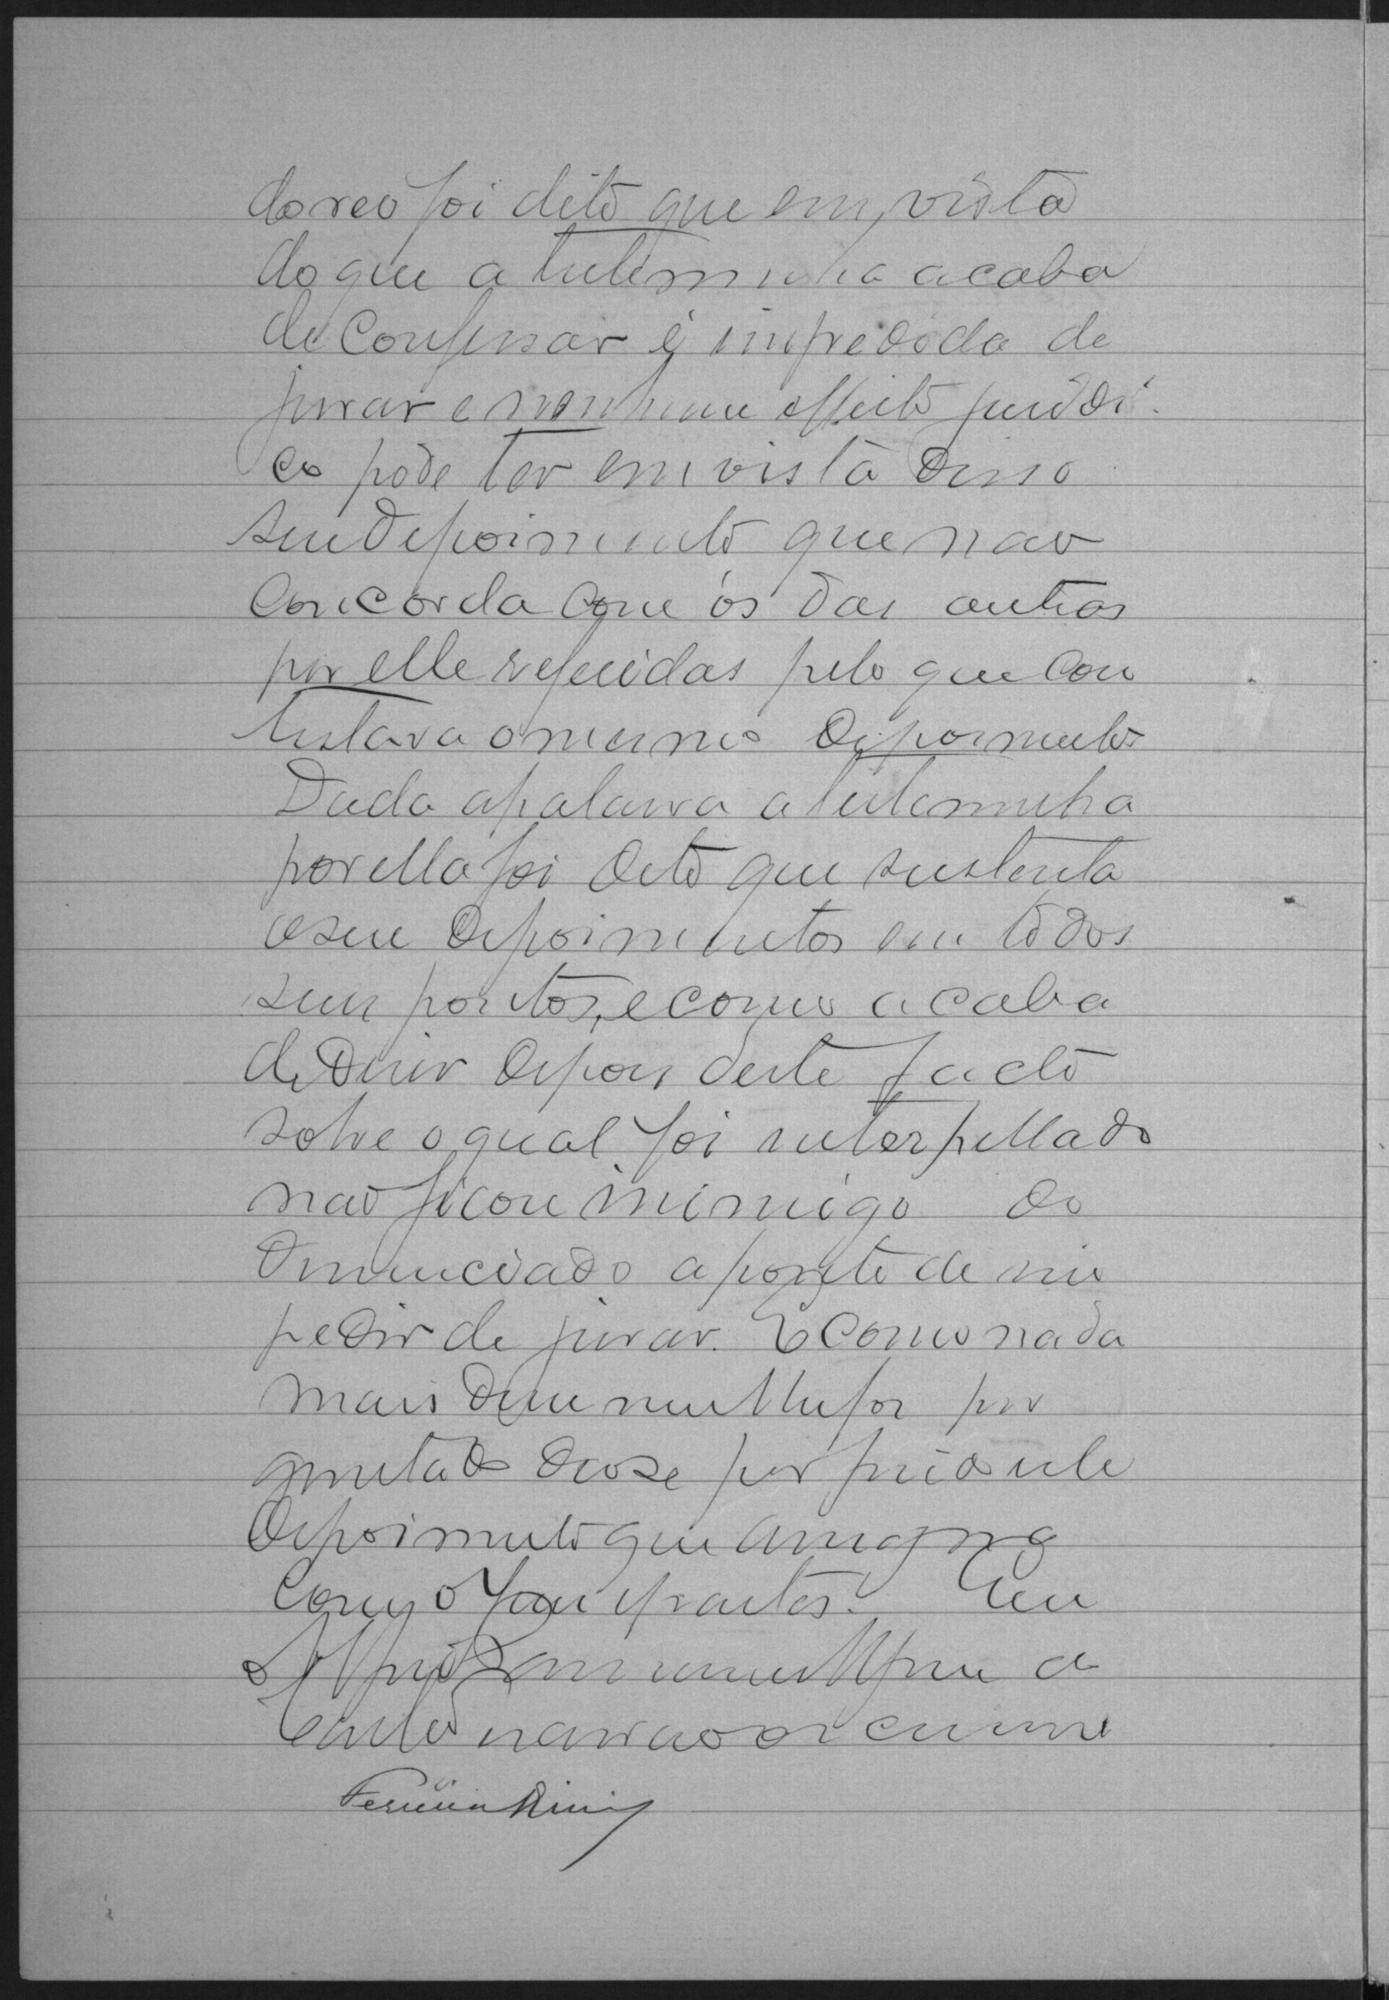 do reo foi dito que em vista
do que a testemunha acaba
de confessar é impedida de
jurar e nenhum effeito juridi-
co pode ter em vista disso
seu depoimento que nao
concorda com os das outras
por elle referidas pelo que con
testava o mesmo depoimento
Dada a palavra a testemunha
por ella foi dito que sustenta
o seu depoimento em todos
seus pontos, e como acaba
de dizer depois deste facto
sobre o qual foi interpellado
nao ficou inimigo do
denunciado a ponto de im
pedir de jurar. E como nada
mais disse nem lhe foi per
guntado deose por findo este
depoimento que assigna
com o Juiz e partes. Eu
escrivão o escrevi